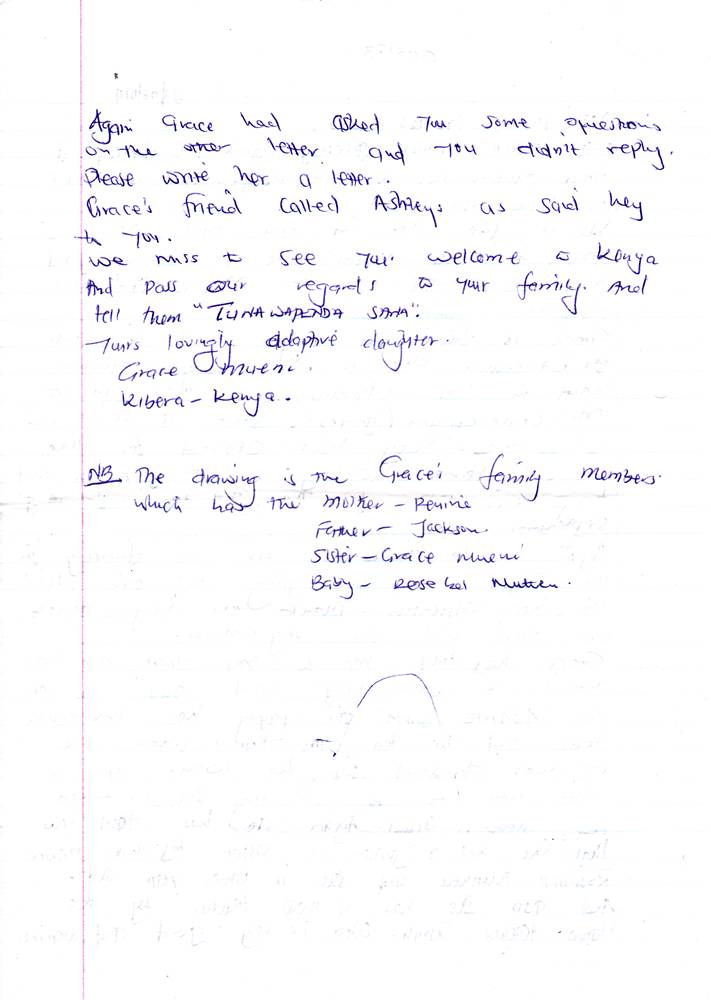 Again Grace had asked you some questions
on the other letter and you didn't reply.
Please write her a letter.
Grace's friend called Ashleys as said hey
to you.
We miss to see you. welcome to Kenya
And pass our regards to your family. And
tell them "TUNAWAPENDA SANA".
Yours lovingly adaptive daughter.
Grace Mueni.
Kibera - Kenya.
NB The drawing is the Grace's family members.
which has the mother - Penine
Father - Jackson.
Sister - Grace Mueni
Baby -